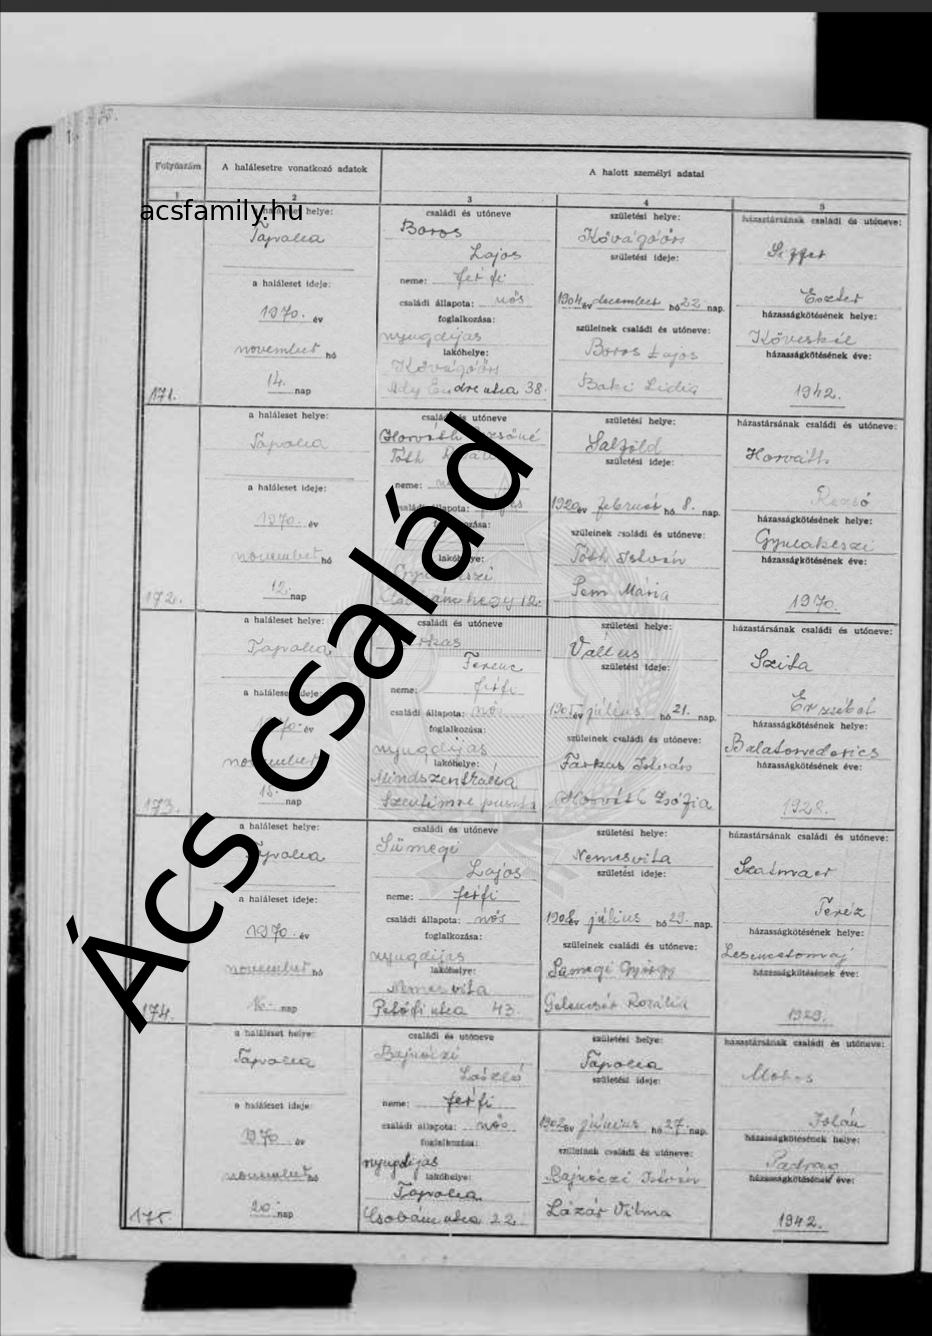 Folyószám
A halálesetre vonatkozó adatok
A halott személyi adatai
1
2
3
4
5
acsfamily.hu
Ács család
a haláleset helye:
Tapolca
a haláleset ideje:
1970. év
november hó
14. nap
171.
családi és utóneve
Boros
Lajos
neme: férfi
családi állapota: nős
foglalkozása:
nyugdíjas
lakóhelye:
Kővágóörs
Ady Endre utca 38.
születési helye:
Kővágóörs
születési ideje:
1904 év december hó 22 nap.
szüleinek családi és utóneve:
Boros Lajos
Baki Lidia
házastársának családi és utóneve:
Eszter
házasságkötésének helye:
Köveskál
házasságkötésének éve:
1942.
a haláleset helye:
Tapolca
a haláleset ideje:
1970. év
november hó
12. nap
172.
családi és utóneve
Horváth Rezsőné
Tóth
neme:
családi állapota:
lakóhelye:
hegy 12.
születési helye:
Salföld
születési ideje:
1920 év február 8. nap.
szüleinek családi és utóneve:
Tóth István
Pem Mária
házastársának családi és utóneve:
Horváth
Rezső
házasságkötésének helye:
Gyulakeszi
házasságkötésének éve:
1970.
a haláleset helye:
Tapolca
a haláleset ideje:
év
november
15. nap
173.
családi és utóneve
Ferenc
neme: férfi
családi állapota: nős
foglalkozása:
nyugdíjas
lakóhelye:
Mindszentkálla
Szentimre puszta
születési helye:
Vállus
születési ideje:
július hó 21. nap.
szüleinek családi és utóneve:
Farkas István
Horváth Zsófia
házastársának családi és utóneve:
Szita
Erzsébet
házasságkötésének helye:
Balatonederics
házasságkötésének éve:
1928.
a haláleset helye:
Tapolca
a haláleset ideje:
1970. év
november hó
16. nap
174.
családi és utóneve
Sümegi
Lajos
neme: férfi
családi állapota: nős
foglalkozása:
nyugdíjas
lakóhelye:
Nemesvita
Petőfi utca 43.
születési helye:
Nemesvita
születési ideje:
1908 év július hó 29. nap.
szüleinek családi és utóneve:
Sümegi György
Gelencsér Rozália
házastársának családi és utóneve:
Teréz
házasságkötésének helye:
Lesencetomaj
házasságkötésének éve:
1929.
a haláleset helye:
Tapolca
a haláleset ideje:
1970 év
november hó
20 nap
175.
családi és utóneve
Bajnóczi
László
neme: férfi
családi állapota: nős
foglalkozása:
nyugdíjas
lakóhelye:
Tapolca
Csobánc utca 22.
születési helye:
Tapolca
születési ideje:
1902 év június hó 27 nap.
szüleinek családi és utóneve:
Bajnóczi István
Lázár Vilma
házastársának családi és utóneve:
Jolán
házasságkötésének helye:
Padrag
házasságkötésének éve:
1942.